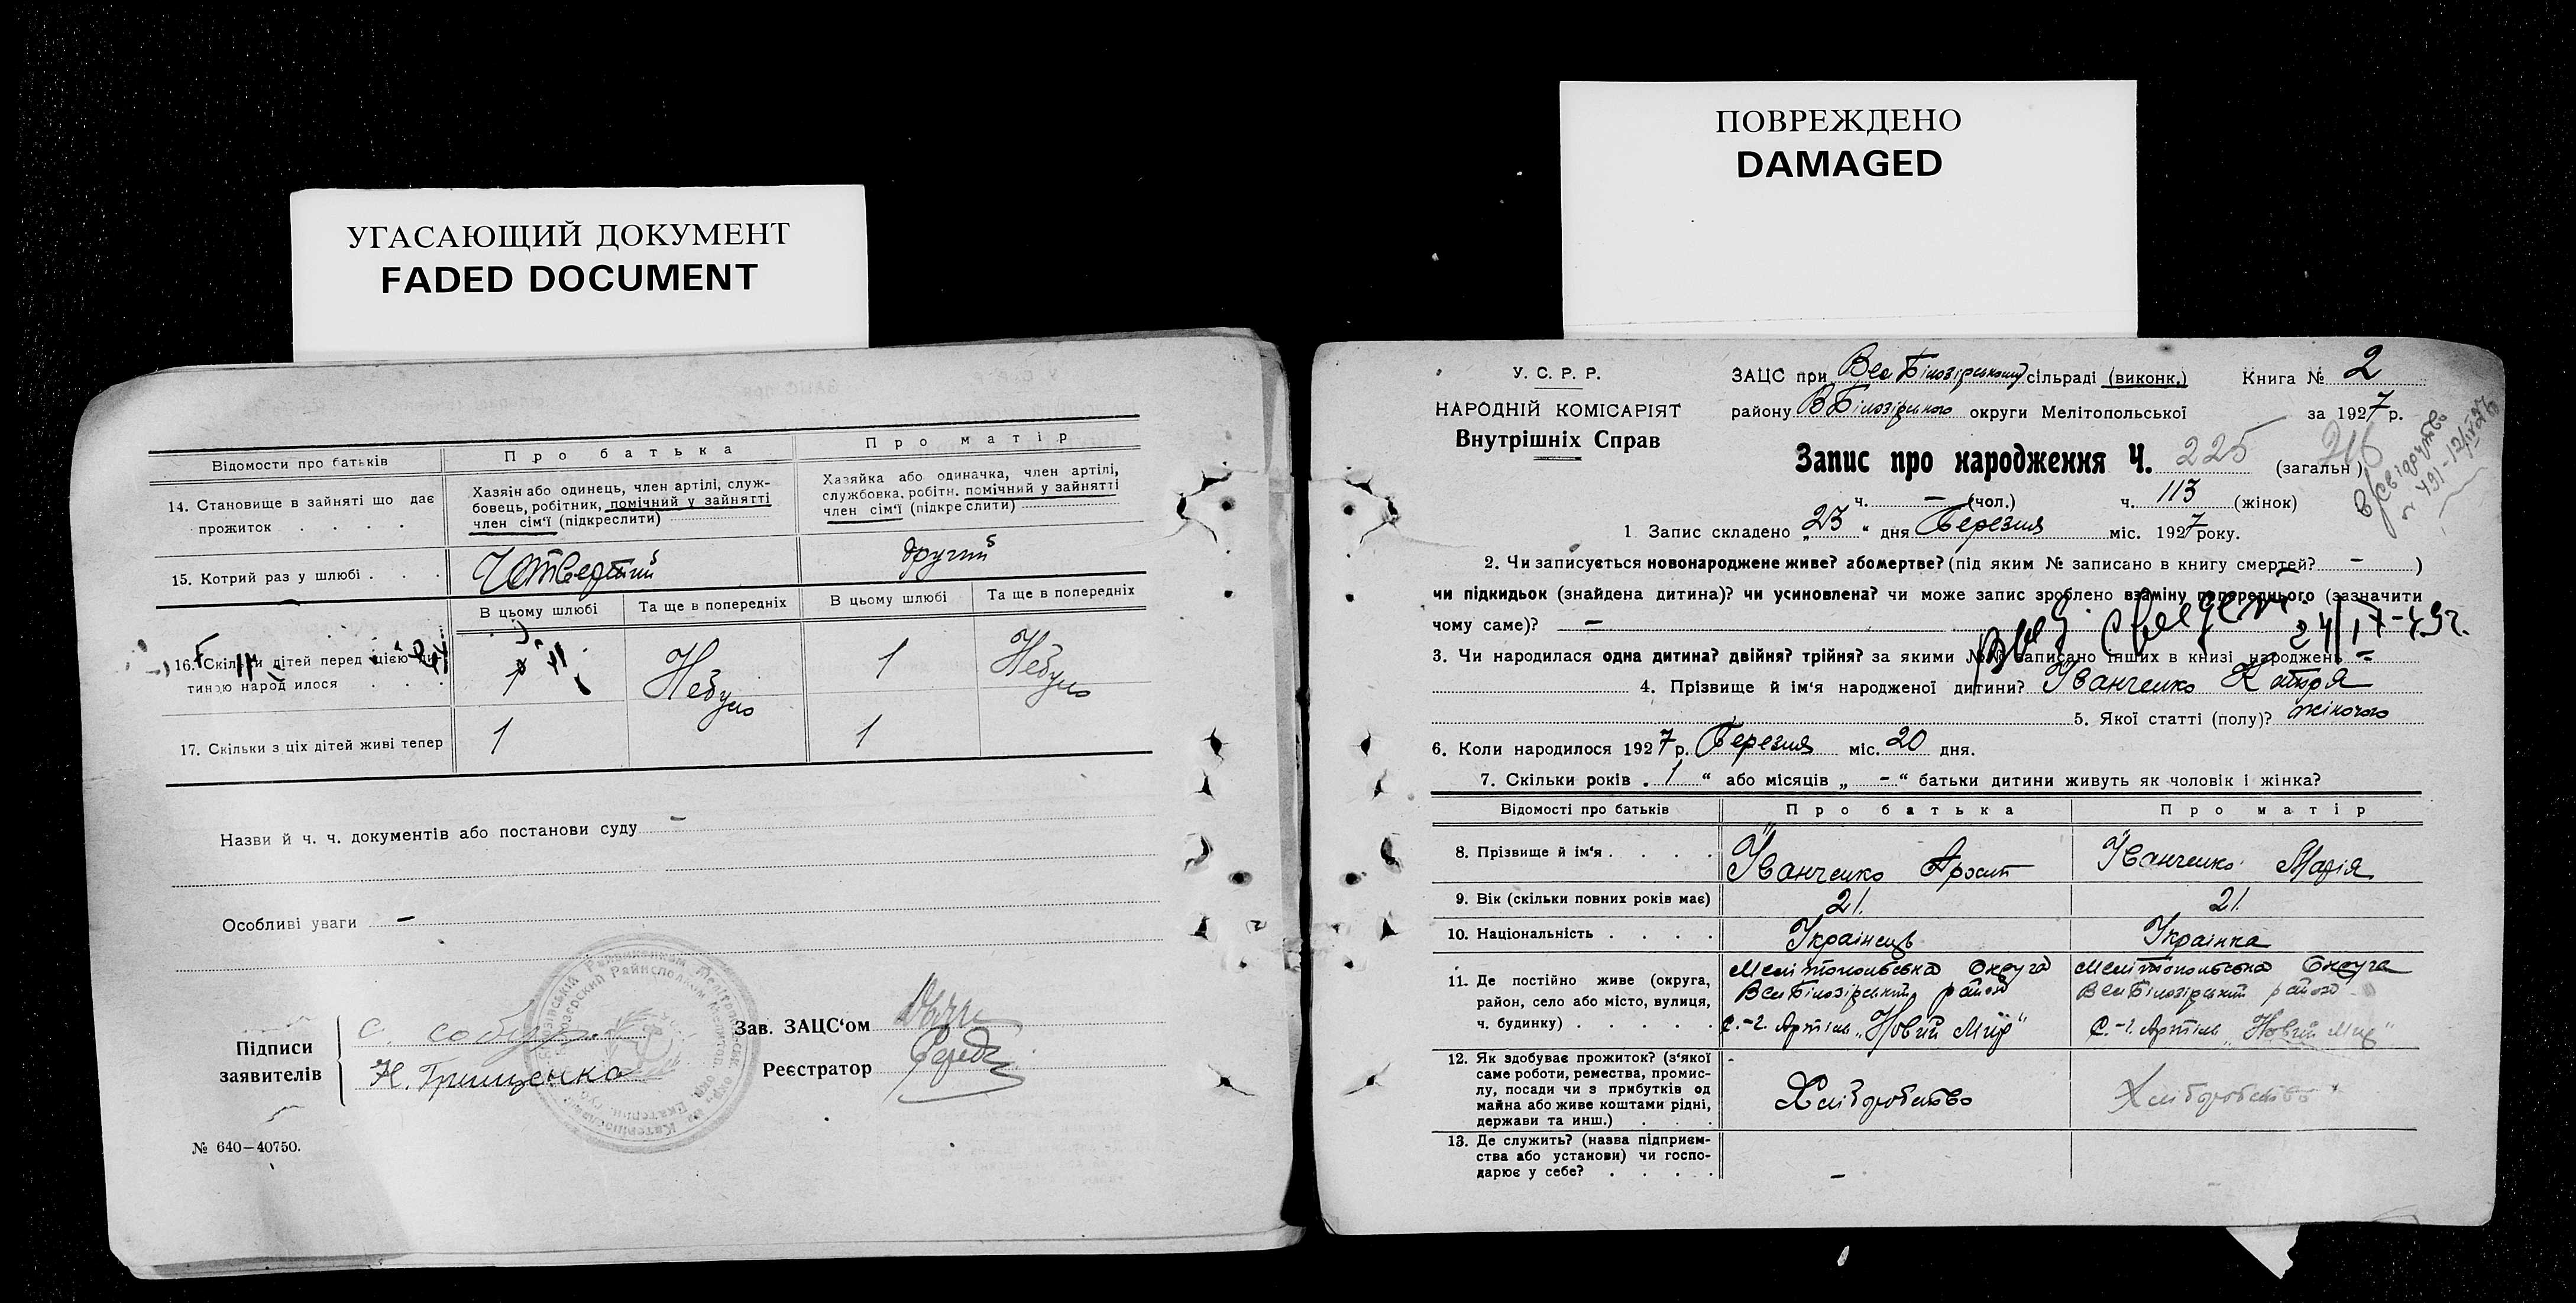 УГАСАЮЩИЙ ДОКУМЕНТ
FADED DOCUMENT
Відомости про батьків
Про батька
Про матір
14. Становище в зайняті що дає прожиток . . . .
Хазяїн або одинець, член артілі, служ-
бовець, робітник, помічний у зайнятті
член сім'ї (підкреслити)
Хазяйка або одиначка, член артілі,
службовка, робітн. помічний у зайнятті
член сім'ї (підкреслити)
15. Котрий раз у шлюбі . . .
Четвертий
другий
В цьому шлюбі
Та ще в попередніх
В цьому шлюбі
Та ще в попередніх
16. Скільки дітей перед цією ди-
тиною народилося . . .
Небуло
1
Небуло
17. Скільки з ціх дітей живі тепер
1
1
Назви й ч. ч. документів або постанови суду –
Особливі уваги –
Підписи
заявителів
Н. Грищенко
Зав. ЗАЦС'ом
Реєстратор
№ 640–40750.
ПОВРЕЖДЕНО
DAMAGED
У. С. Р. Р.
НАРОДНІЙ КОМІСАРІЯТ
Внутрішніх Справ
ЗАЦС при Вел Білозірському сільраді (виконк.) Книга № 2
району ВБілозірського округи Мелітопольської за 1927 р.
Запис про народження Ч. 225 (загальн.)
ч. – (чол.) ч. 113 (жінок)
1 Запис складено „23“ дня Березня міс. 1927 року.
2. Чи записується новонароджене живе? або мертве? (під яким № записано в книгу смертей? – )
чи підкидьок (знайдена дитина)? чи усиновлена? чи може запис зроблено взаміну попереднього (зазначити
чому саме)? –
3. Чи народилася одна дитина? двійня? трійня? за якими №№ записано інших в книзі народжень –
4. Прізвище й ім'я народженої дитини? Іванченко Катря
5. Якої статті (полу)? жіночого
6. Коли народилося 1927 р. Березня міс. 20 дня.
7. Скільки років „1“ або місяців „–“ батьки дитини живуть як чоловік і жінка?
Відомості про батьків
Про батька
Про матір
8. Прізвище й ім'я . . . .
Іванченко
Іванченко Марія
9. Вік (скільки повних років має)
21.
21.
10. Національність . . . .
Украінець
Украінка
11. Де постійно живе (округа,
район, село або місто, вулиця,
ч. будинку) . . . . .
Мелітопольська Округа
Вел Білозірський район
с.-г. Артіль „Новий Мир“
Мелітопольська Округа
Вел Білозірський район
с.-г. Артіль „Новий Мир“
12. Як здобуває прожиток? (з'якої
саме роботи, ремества, промис-
лу, посади чи з прибутків од
майна або живе коштами рідні,
держави та инш.) . . .
Хліборобство
Хліборобство
13. Де служить? (назва підприєм-
ства або установи) чи госпо-
дарює у себе? . . . .
–